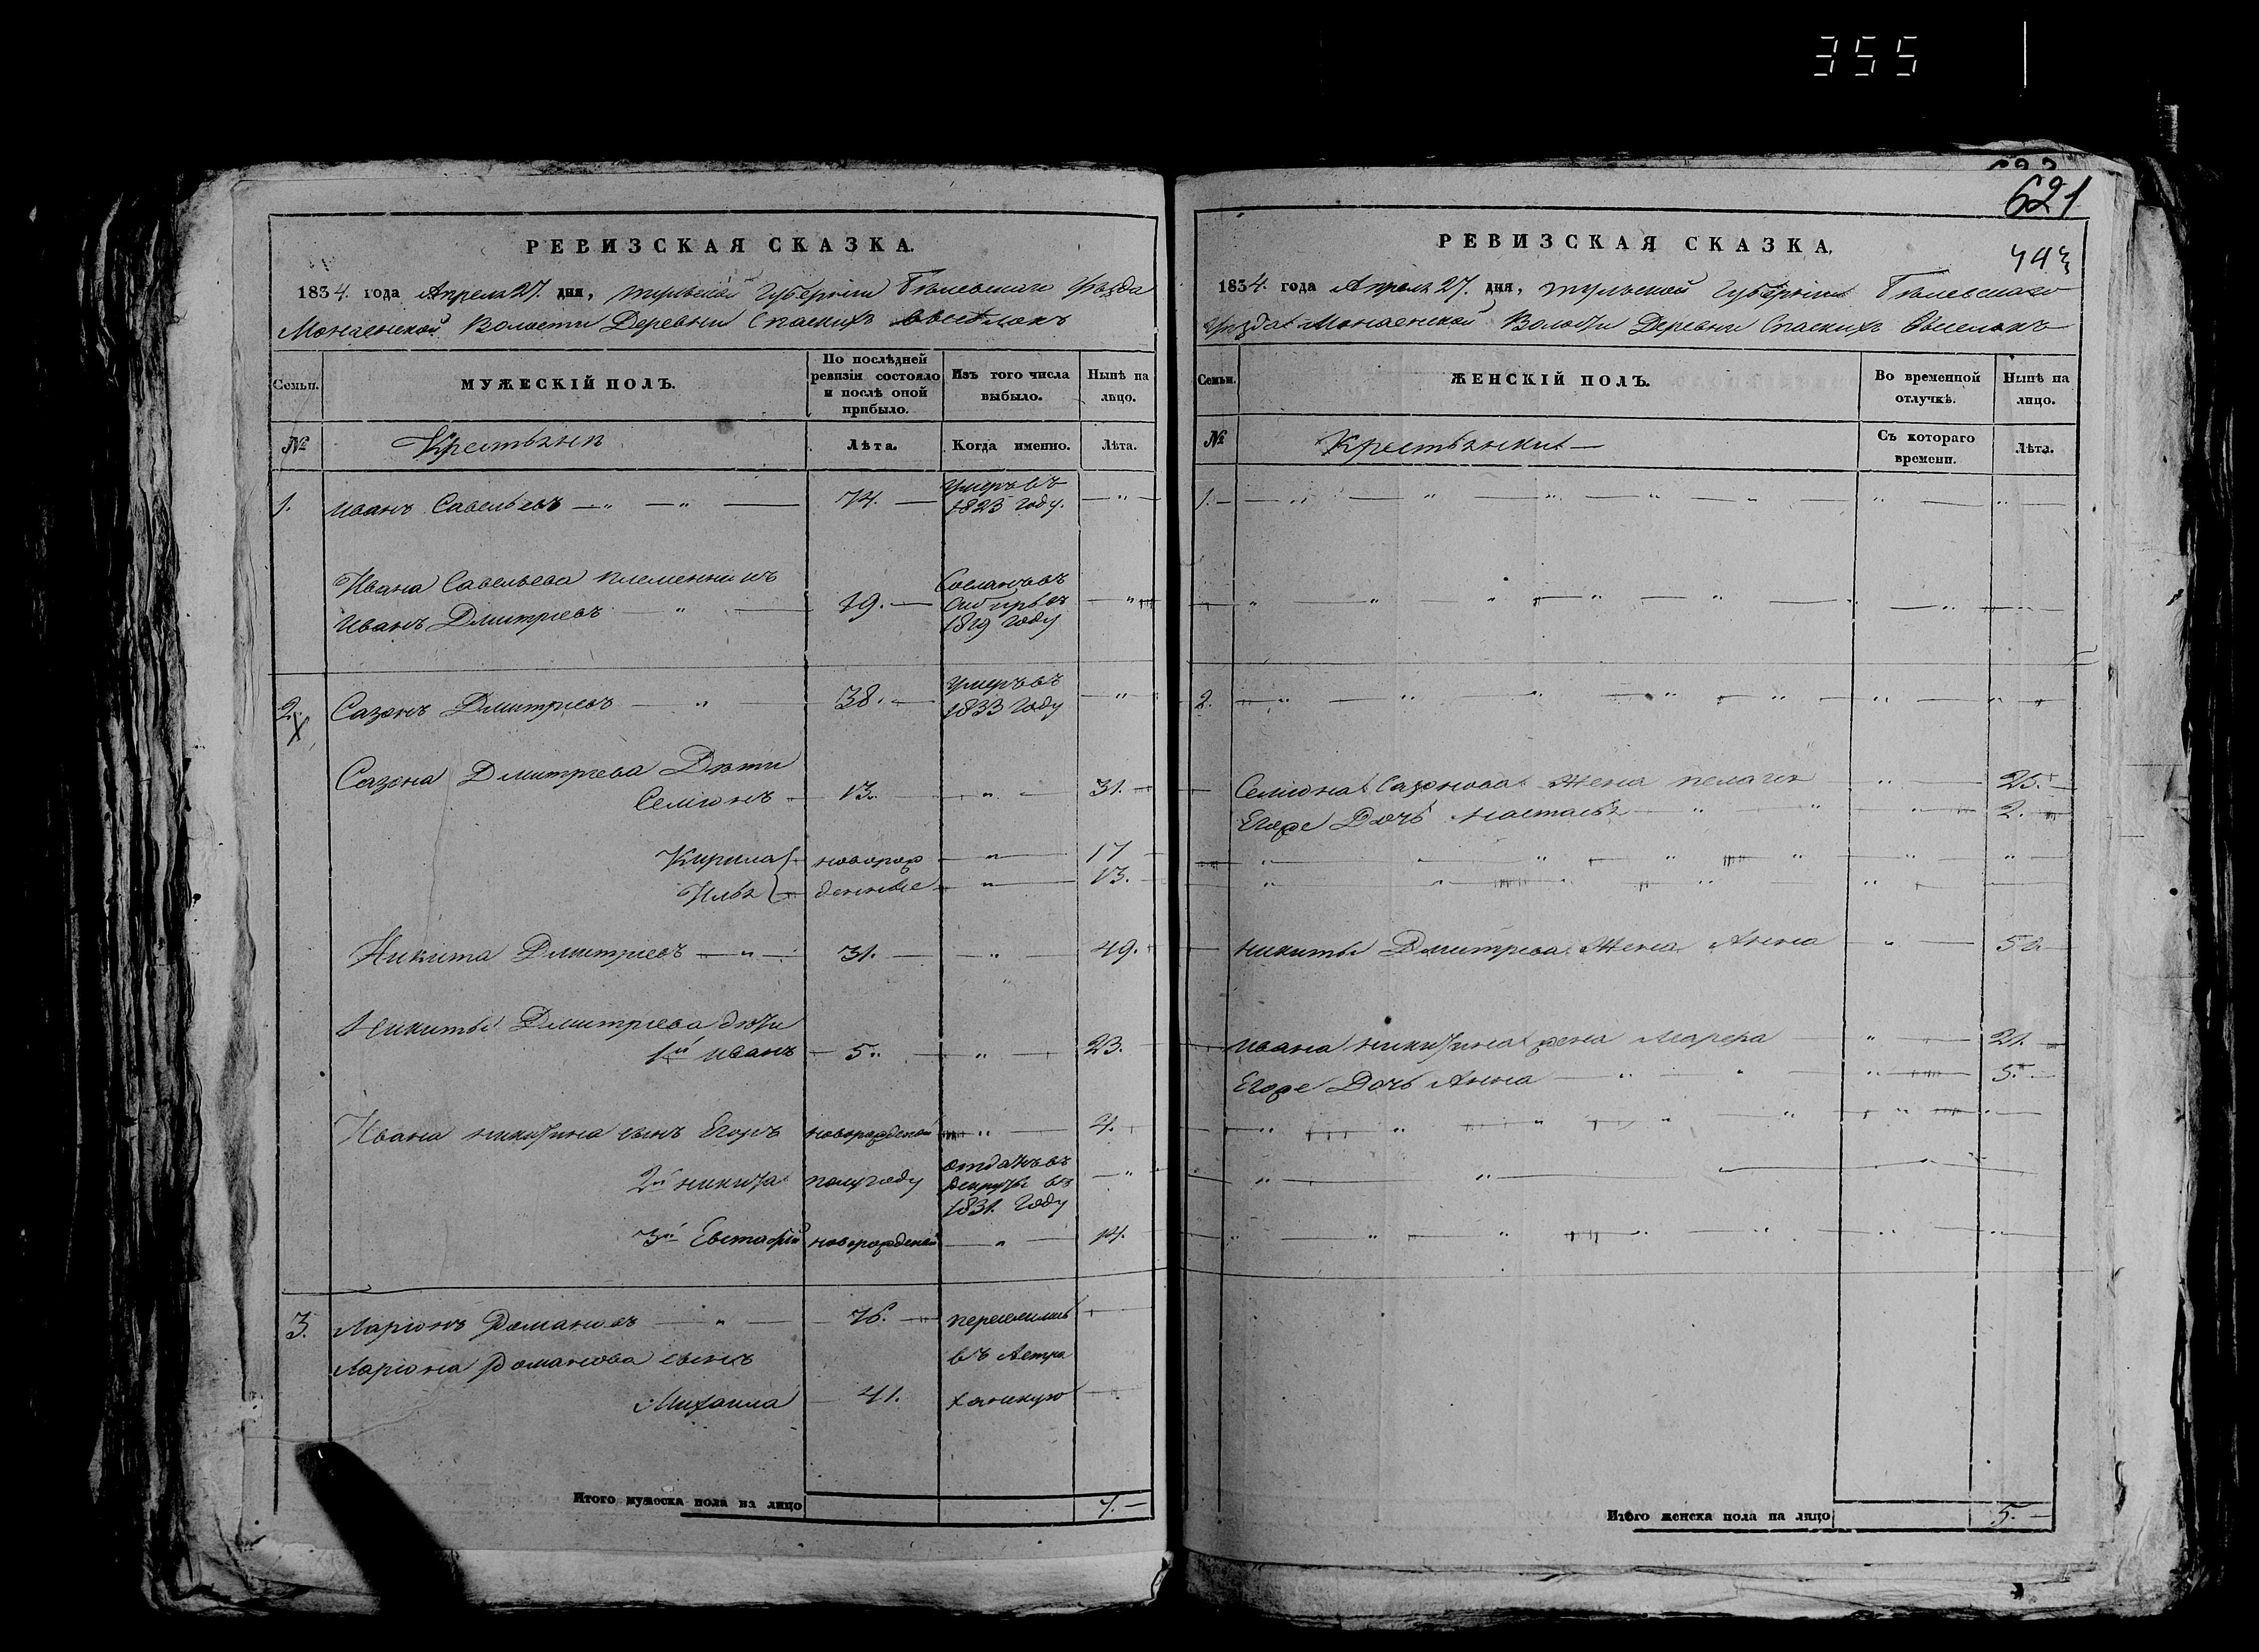 355
621
443
РЕВИЗСКАЯ СКАЗКА.
1834. года Апреля 27. дня, Тульской Губернии Белевскаго Уезда
Монаенской Волости Деревни Спаских
Семьи.
МУЖЕСКІЙ ПОЛЪ.
По послѣдней ревизіи состояло и послѣ оной прибыло.
Изъ того числа выбыло.
Нынѣ на лицо.
№
Крестьяня
Лѣта.
Когда именно.
Лѣта.
1. Иванъ Савельевъ 74. умеръ въ 1823 году.
Ивана Савельева племенникъ
Иванъ Дмитріевъ 19. Сосланъ въ Сибирь въ 1819 году
2. Сазонъ Дмитріевъ 38. умеръ въ 1833 году
Сазона Дмитріева Дети
Семіонъ 13. 31.
Кирила новорож 17
Илья денные 13.
Никита Дмитріевъ 31. 49.
Никиты Дмитріева дети
1й Иванъ 5. 23.
Ивана Никитина сынъ Егоръ новорожденой 4.
2й Никита полугоду отданъ въ рекруты въ 1831. году
3й Евстафий новорожденой 14.
3. Ларіонъ Романовъ 76. переселились
Ларіона Романова сынъ въ Астра
Михаила 41. ханскую
Итого мужеска пола на лицо 7.
РЕВИЗСКАЯ СКАЗКА.
1834. года Апреля 27. дня, Тульской Губерніи Белевскаго
Уезда Монаенской Волости Деревни Спаских Выселокъ
Семьи.
ЖЕНСКІЙ ПОЛЪ.
Во временной отлучкѣ.
Нынѣ на лицо.
№
Крестьянки
Съ котораго времени.
Лѣта.
1.
2.
Семіона Сазонова Жена Пелагея 25.
Егоже Дочь Настасья 2.
Никиты Дмитрева Жена Анна 50.
Ивана Никитина жена Марфа 21.
Егоже Дочь Анна 5.
Итого женска пола на лицо 5.